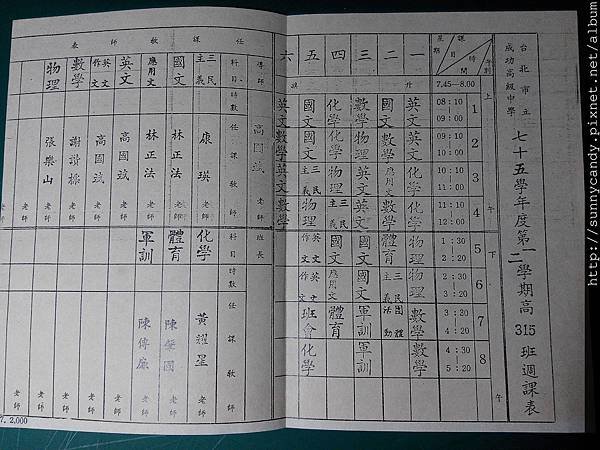 台北市立
成功高級中學
七十五學年度第一二學期高315班週課表
星期
課目
時間
一
二
三
四
五
六
升
旗
7.45—8.00
上
午
1
08:10
09:00
英文
國文
數學
化學
國文
英文
2
09:10
10:00
英文
數學
物理
化學
國文
數學
3
10:10
11:00
化學
應用文
英文
物理
三民主義
英文
4
11:10
12:00
化學
數學
英文
三民主義
物理
數學
下
午
5
1:30
2:20
物理
體育
國文
國文
英文作文
6
2:30
3:20
物理
三民主義
國文
應用文
英文作文
7
3:30
4:20
數學
團體活動
軍訓
體育
班會
8
4:30
5:20
數學
軍訓
化學
任課教師表
導師
高國
老師
班長
科目
時數
任課教師
三民主義
康瑛
老師
國文
林正法
老師
應用文
林正法
老師
英文
高國
老師
英文作文
高國
老師
數學
謝
老師
物理
張樂山
老師
老師
科目
時數
任課教師
化學
黃耀星
老師
體育
陳國
老師
軍訓
陳傳
老師
老師
老師
老師
老師
老師
7. 2,000
http://sunnycandy.pixnet.net/album